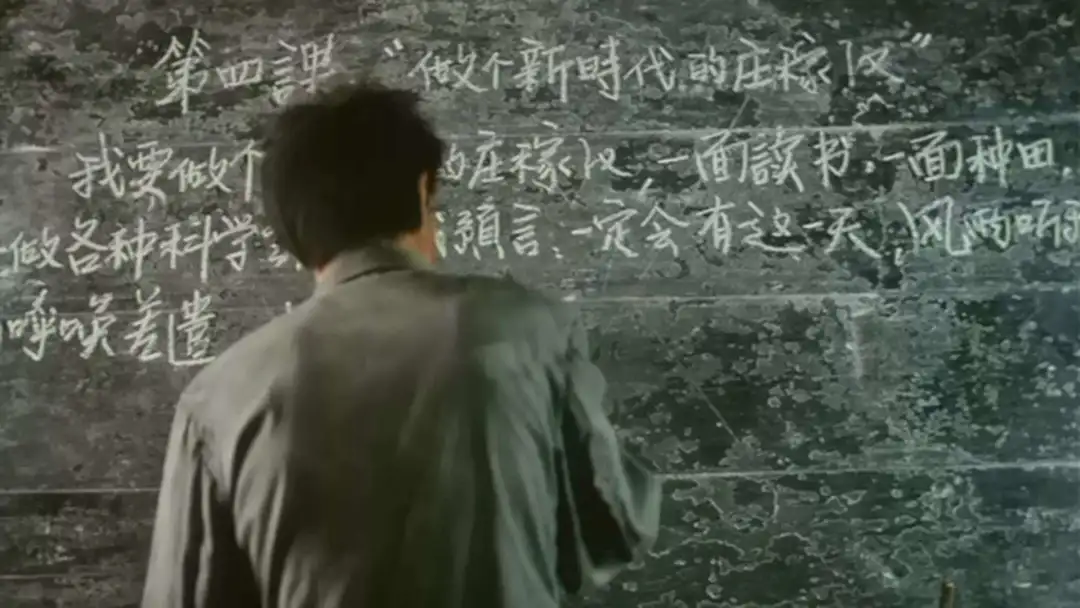 第四課 “做个新時代的庄稼汉”
我要做个 的庄稼汉,一面讀书,一面种田,
做各种科学 預言,一定会有这一天,风雨听
呼唤差遣